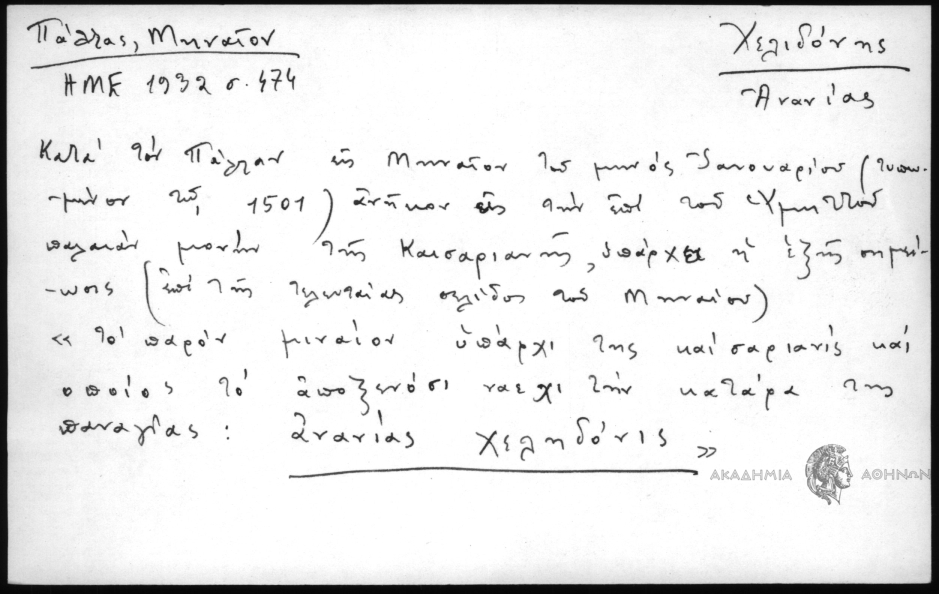 Πάλλας, Μηναῖον
ΗΜΕ 1932 σ. 474
Χελιδόνης
Ἀνανίας
Κατά τόν Πάλλαν εἰς Μηναῖον τοῦ μηνός Ἰανουαρίου (τυπω-
-μένον τῷ 1501) ἀνῆκον εἰς τήν ἐπί τοῦ Ὑμηττοῦ
παλαιάν μονήν τῆς Καισαριανῆς, ὑπάρχει ἡ ἑξῆς σημεί-
-ωσις (ἐπί τῆς τελευταίας σελίδος τοῦ Μηναίου)
« τό παρόν μιναίον ὑπάρχι της καίσαριανίς καί
οποίος τό ἀποξενόσι ναεχι τήν κατάρα της
παναγίας : ἀνανίας χεληδόνις »
ΑΚΑΔΗΜΙΑ ΑΘΗΝΩΝ